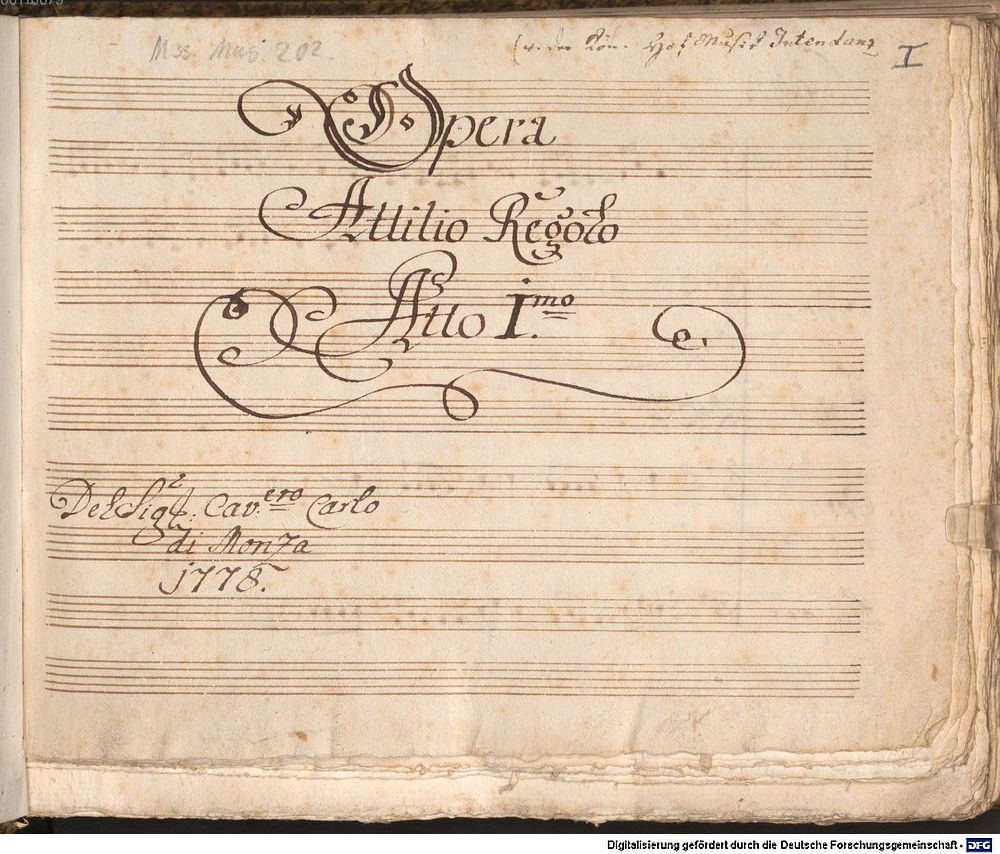 Mss. Mus. 202.
Hof Musik Intendanz
I
Opera
Attilio Regolo
Atto I.mo
Del Sigr. Cav.ero Carlo
di Monza
1778.
Digitalisierung gefördert durch die Deutsche Forschungsgemeinschaft - DFG